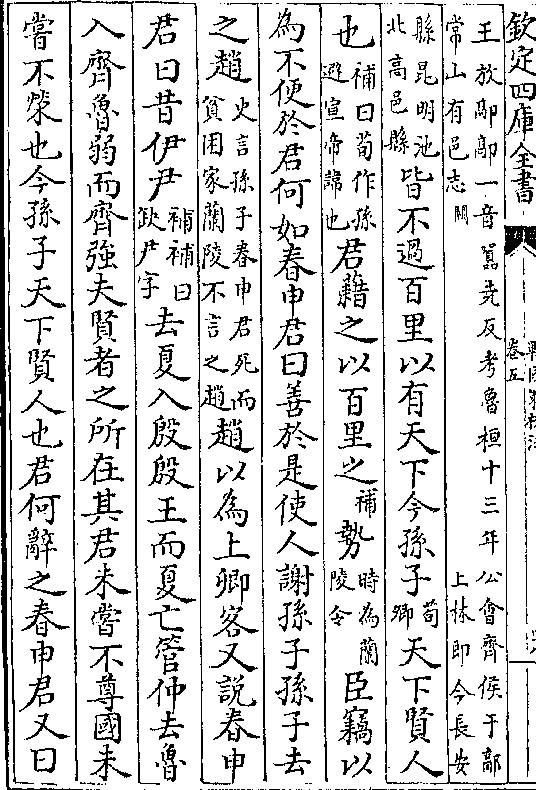 欽定四庫全書
卷五
王放鄗鄗一音囂堯反考魯桓十三年公會齊侯于鄗
常山有邑志闕上林即今長安
縣昆明池北高邑縣皆不過百里以有天下今孫子荀卿天下賢人
也補曰荀作孫避宣帝諱也君藉之以百里之補勢時為蘭陵令臣竊以
為不便於君何如春申君曰善於是使人謝孫子孫子去
之趙史言孫子春申君死而貧困家蘭陵不言之趙趙以為上卿客又說春申
君曰昔伊尹補補曰缺尹字去夏入殷殷王而夏亡管仲去魯
入齊魯弱而齊強夫賢者之所在其君未嘗不尊國未
嘗不榮也今孫子天下賢人也君何辭之春申君又曰